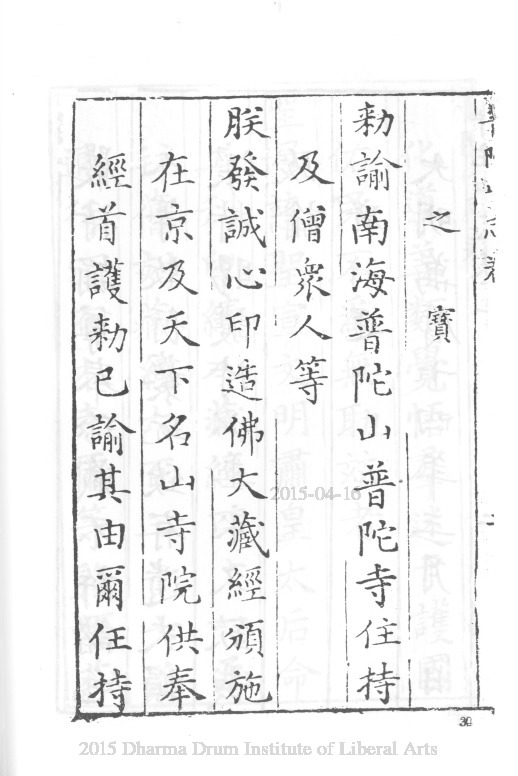 之寶
勅諭南海普陀山普陀寺住持
及僧衆人等
朕發誠心印造佛大藏經頒施
在京及天下名山寺院供奉
經首護勅已諭其由爾住持
2015-04-16
2015 Dharma Drum Institute of Liberal Arts